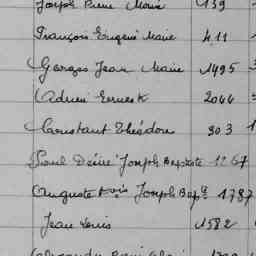 Joseph Pierre Marie 139
François Eugène Marie 411
Georges Jean Marie 1495
Adrien Ernest 2044
Constant Théodore 303
Paul Désiré Joseph Baptiste 1267
Auguste Fois Joseph Bapte 1787
Jean Louis 1582